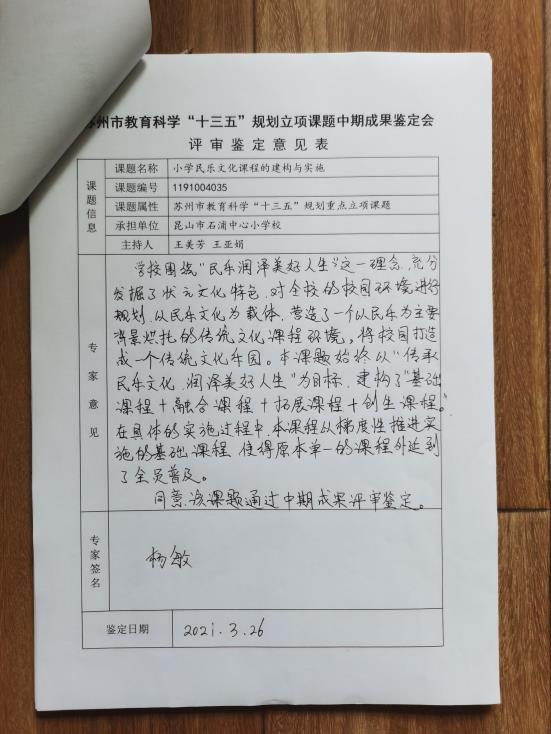 苏州市教育科学“十三五”规划立项课题中期成果鉴定会
评审鉴定意见表
课题信息
课题名称 小学民乐文化课程的建构与实施
课题编号 1191004035
课题属性 苏州市教育科学“十三五”规划重点立项课题
承担单位 昆山市石浦中心小学校
主持人 王美芳 王亚娟
专家意见
学校围绕“民乐润泽美好人生”这一理念,充分
发掘了状元文化特色,对全校的校园环境进行
规划,以民乐文化为载体,营造了一个以民乐为主要
背景烘托的传统文化课程环境,将校园打造
成一个传统文化乐园。本课题始终以“传承
民乐文化,润泽美好人生”为目标,建构了“基础
课程+融合课程+拓展课程+创生课程。”
在具体的实施过程中,本课程从梯度性推进实
施的基础课程,使得原本单一的课程外达到
了全员普及。
同意该课题通过中期成果评审鉴定。
专家签名
杨敏
鉴定日期 2021.3.26